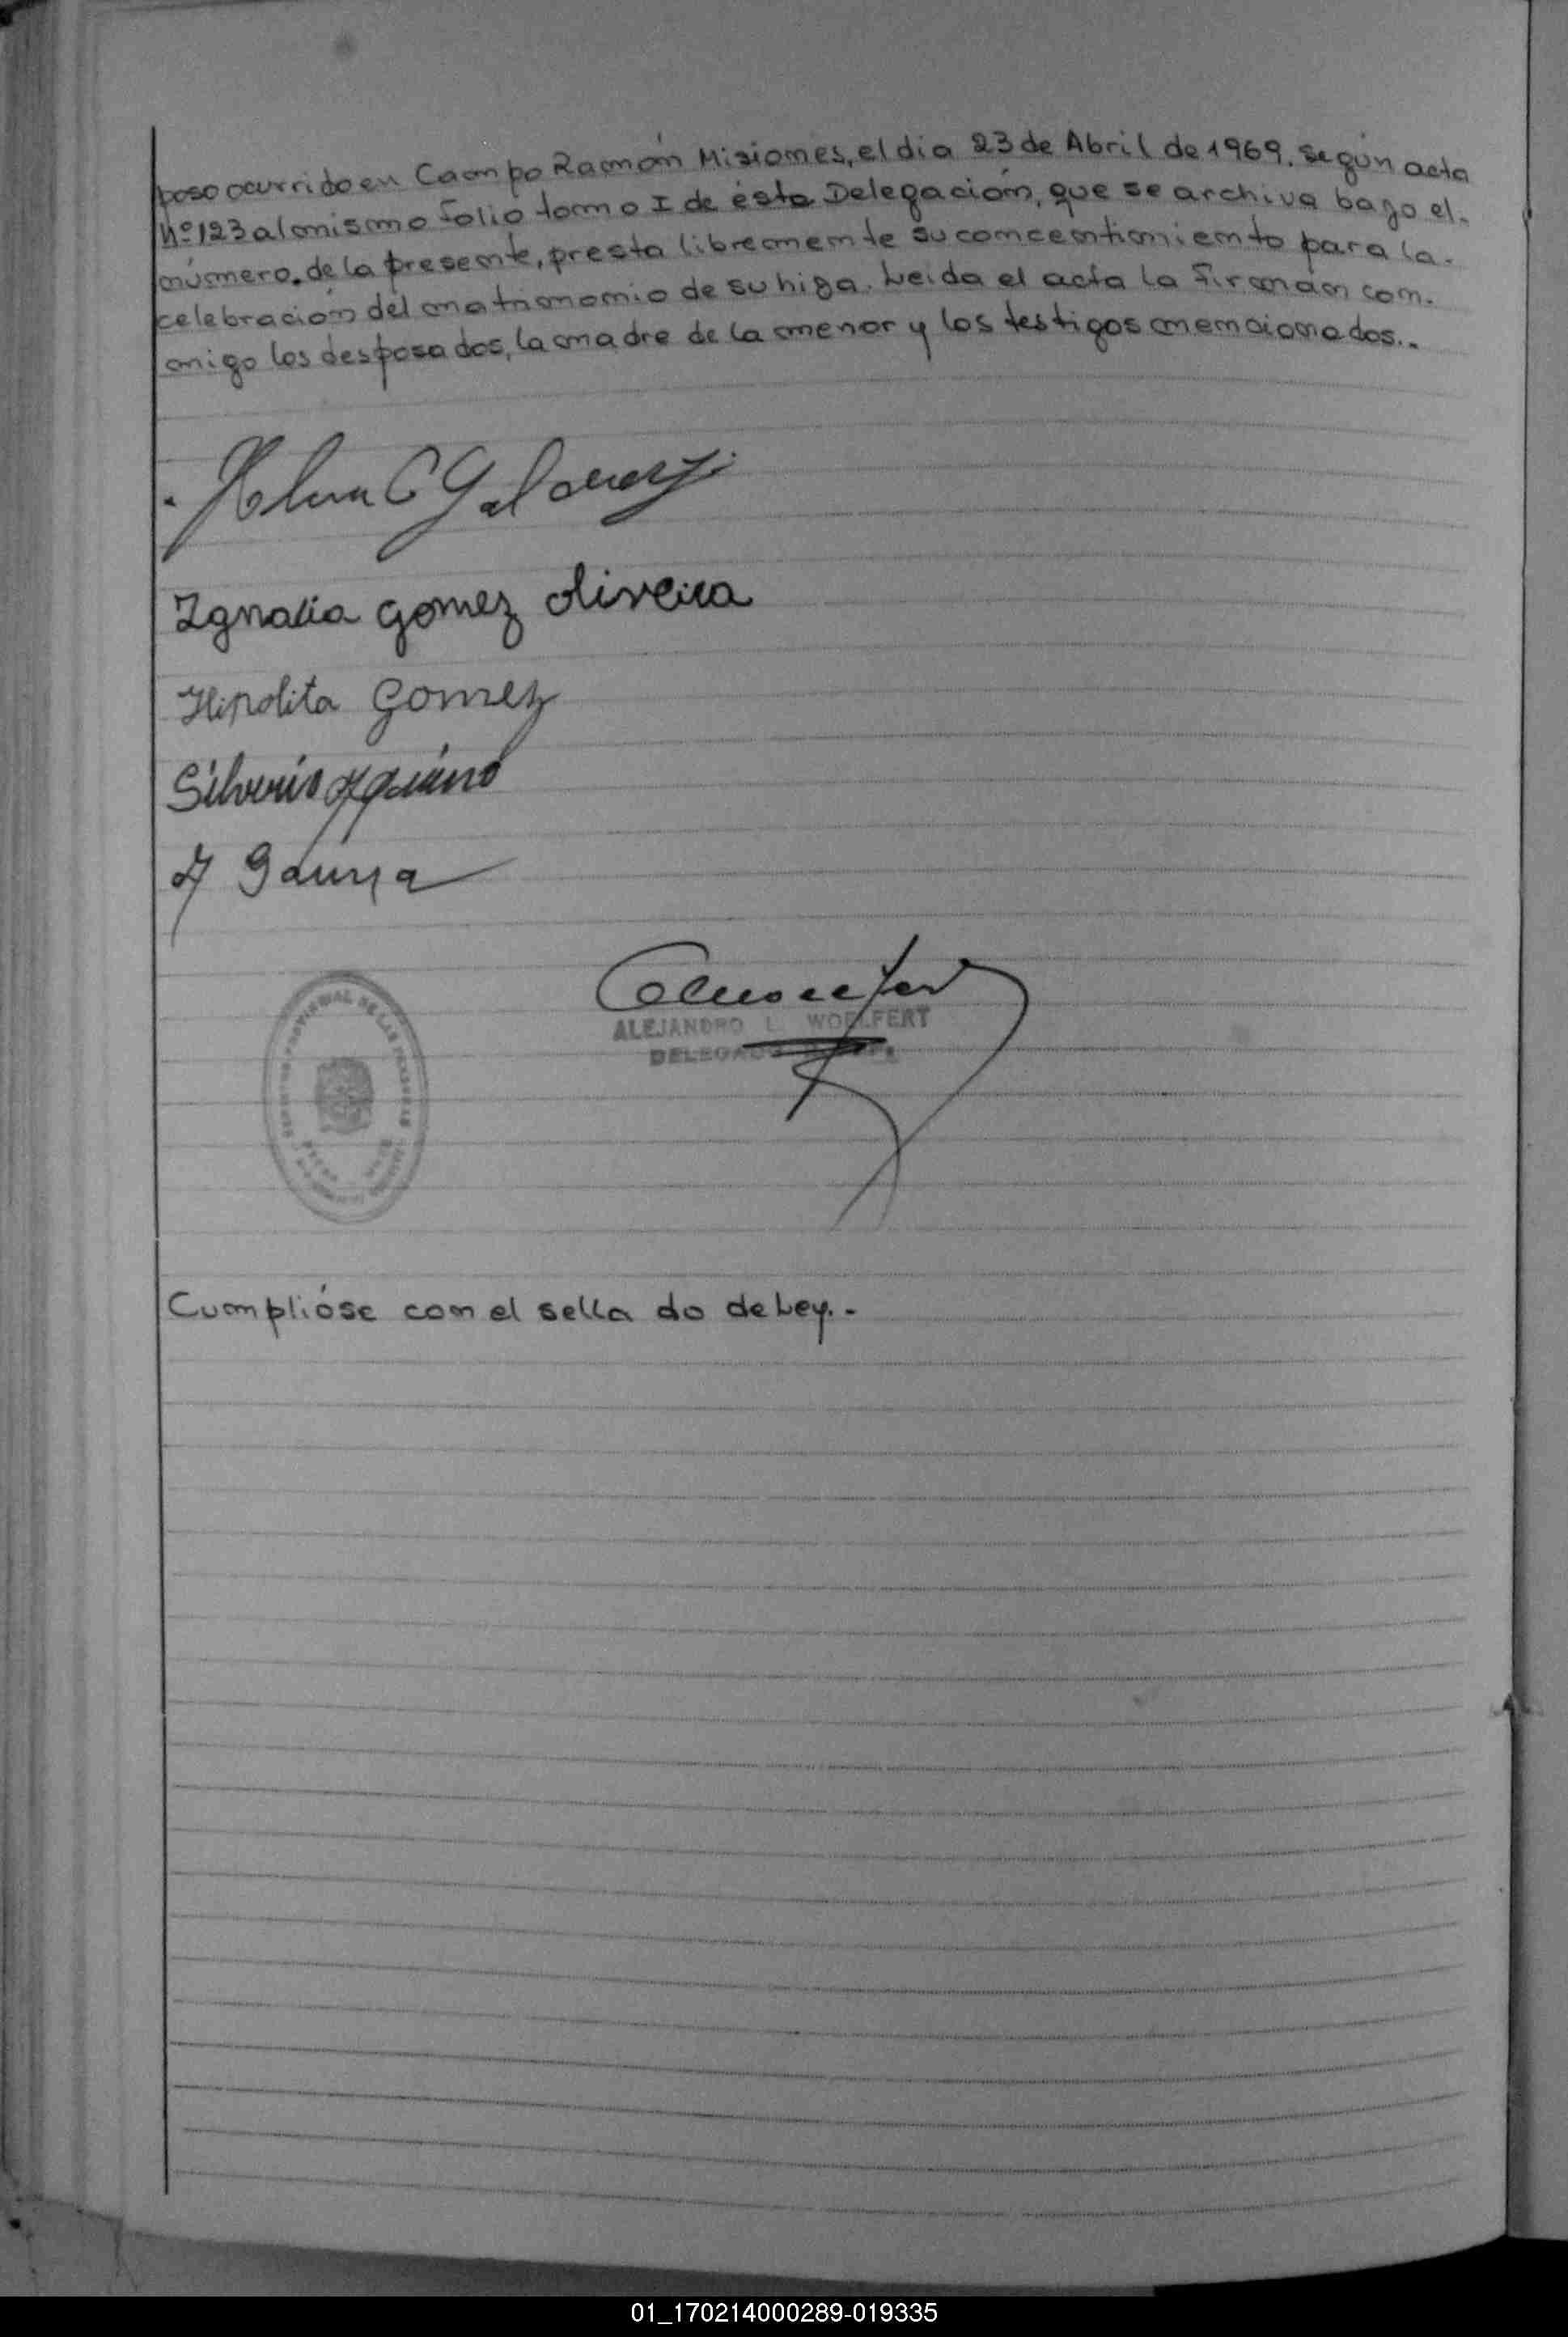 poso ocurrido en Campo Ramón Misiones, el dia 23 de Abril de 1969. según acta
Nº 123 al mismo folio tomo I de ésta Delegación, que se archiva bajo el.
número. de la presente, presta libremente su concentimiento para la.
celebración del matrimonio de su hija. Leida el acta la firmán con.
migo los desposados, la madre de la menor y los testigos mencionados..
Ignacia gomez oliveira
Hipolita Gomez
Silverio
ALEJANDRO L. WOELFERT
DELEGADO
Cumplióse con el sellado de Ley. -
01_170214000289-019335